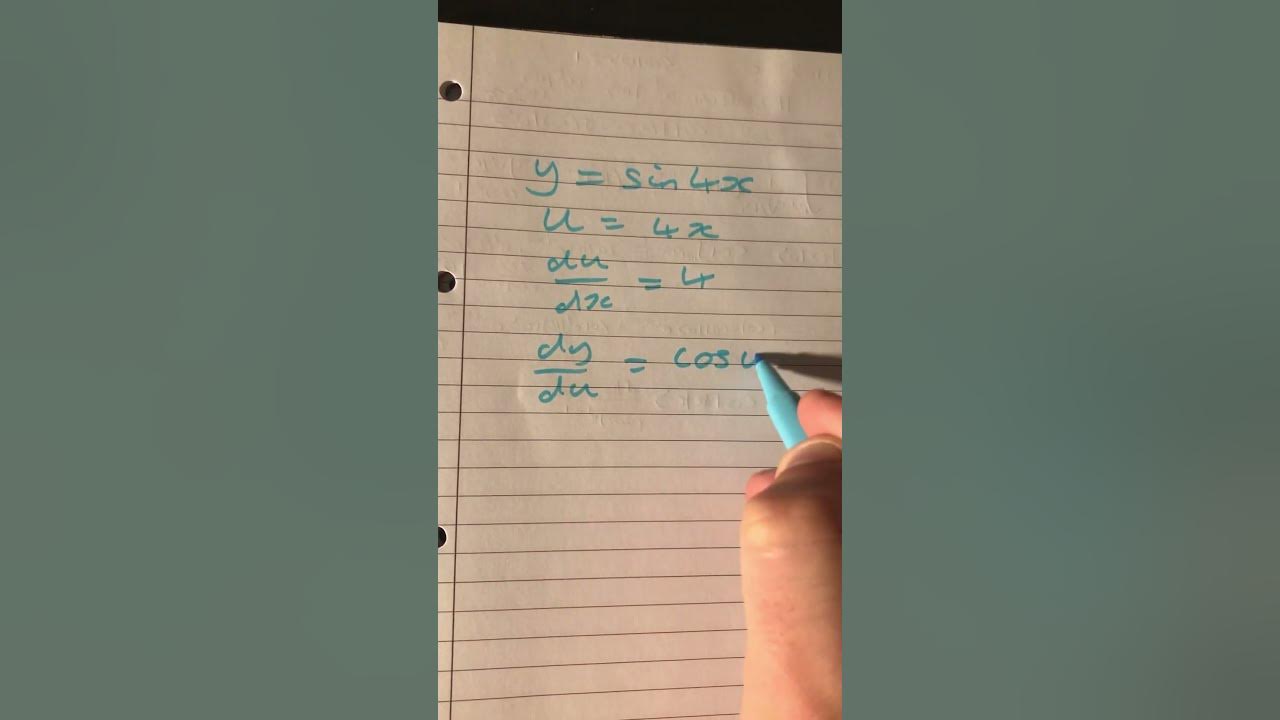 y = sin 4x
u = 4x
du/dx = 4
dy/du = cos u